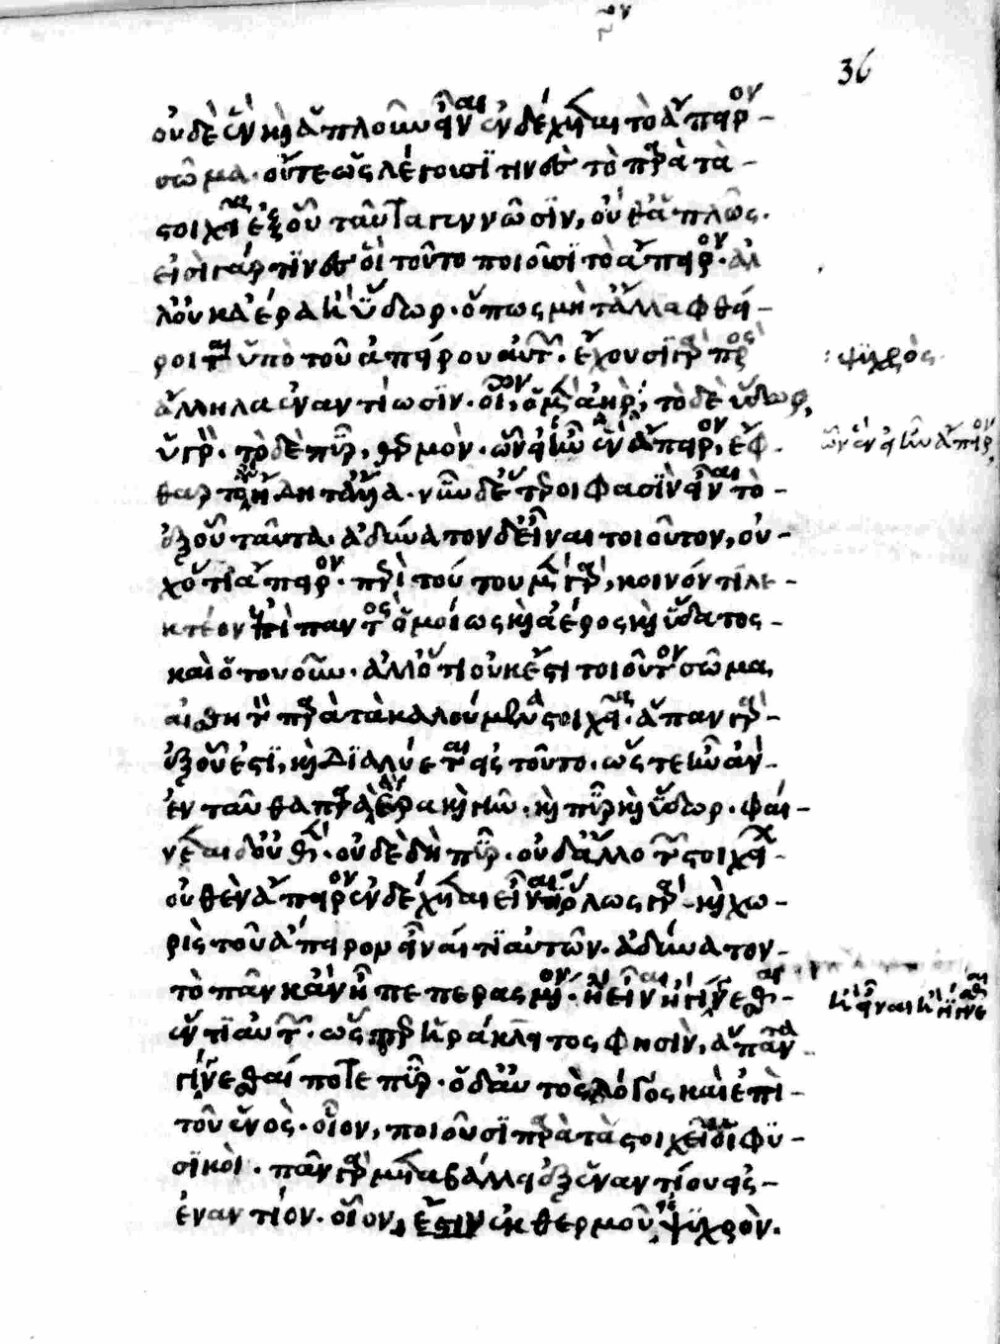 οὐδὲ ἓν κὶ ἁπλοῦν εἶναι ἐνδέχεται τὸ ἄπειρον
σῶμα. οὔτε ὥς λέγουσί τινες τὸ παρὰ τὰ
στοιχεῖα ἐξ οὗ ταῦτα γεννῶσϊν, οὐθ' ἁπλῶς.
εἰσὶ γάρ τινες οἳ τοῦτο ποιοῦσϊ τὸ ἄπειρον. ἀλ
λ' οὐκ ἀέρα κὶ ὕδωρ. ὅπως μὴ τἄλλα φθεί
ροιται ὑπὸ τοῦ ἀπείρου αὐτῶν. ἔχουσϊ γὰρ πρὸς
ἄλληλα ἐναντίωσϊν. οἷον, ὁ μὲν ἀὴρ, ψῦχρὸς τὸ δὲ ὕδωρ,
ὑγρὸν. τὸ δὲ πῦρ, θερμὸν. ὧν εἰ ἦν ἓν ἄπειρον, ἔφ
θαρτο ἂν ἤδη τἄλλα. νῦν δ' ἕτερον φασϊν εἶναι τὸ
ἐξ οὗ ταῦτα. ἀδύνατον δ' εἶναι τοιοῦτον, οὐ
χ' ὅτι ἄπειρον. περὶ τούτου μὲν γὰρ, κοινόν τι λε
κτέον ἐπὶ παντὸς ὁμοίως κὶ ἀέρος κὶ ὕδατος
καὶ ὁτουοῦν. ἀλλ' ὅτι οὐκ ἔστι τοιοῦτον σῶμα
αἰσθητὸν παρὰ τὰ καλούμενα στοιχεῖα. ἅπαν γὰρ
ἐξ οὗ ἐστϊ, κὶ διαλύεται εἰς τοῦτο. ὥστε ἦν ἂν
ἐνταῦθα παρὰ ἀέρα κὶ γῆν. κὶ πῦρ κὶ ὕδωρ. φαί
νεται δ' οὐθέν. οὐδὲ δὴ πῦρ. οὐδ' ἄλλο τῶν στοιχείων
οὐθὲν ἄπειρον ἐνδέχεται εἶναι. ὅλως γὰρ κὶ χω
ρὶς τοῦ ἄπειρον εἶναί τϊ αὐτῶν. ἀδύνατον
τὸ πᾶν κἂν ᾖ πεπερασμένον. ἢ εἶναι ἢ γίνεσθαι
ἕν τϊ αὐτῶν. ὥσπερ ἡράκλητος φησϊν, ἅπαντα
γίνεσθαί ποτε πῦρ. ὁ δ' αὐτὸς λόγος καὶ ἐπὶ
τοῦ ἑνὸς. οἷον, ποιοῦσϊ παρὰ τὰ στοιχεῖα οἱ φϋ
σϊκοὶ. πᾶν γὰρ μεταβάλλει ἐξ ἐναντίου εἰς
ἐναντίον. οἷον, ἔστιν ἐκ θερμοῦ ψϋχρὸν.
36
: ψϋχρὸς
ὧν ἓν εἰ ἦν ἄπειρον
κὶ εἶναι κὶ γίγνεσθαι